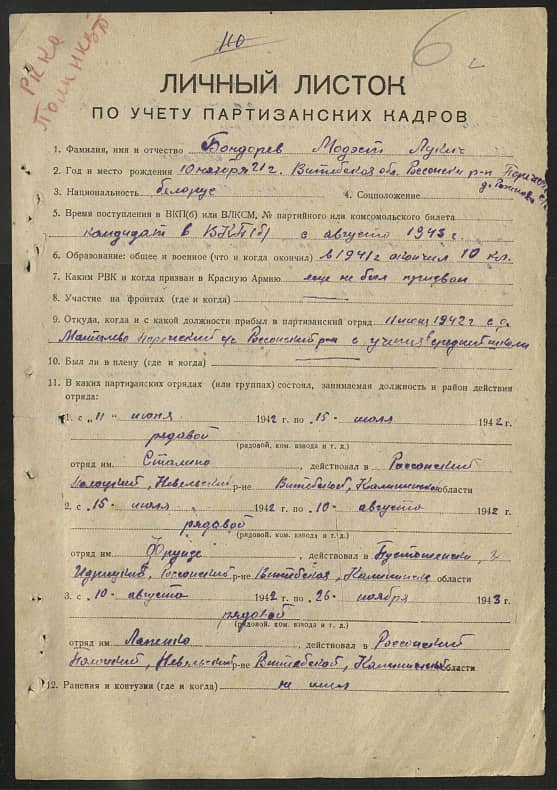 РККА
по
6
ЛИЧНЫЙ ЛИСТОК
ПО УЧЕТУ ПАРТИЗАНСКИХ КАДРОВ
1. Фамилия, имя и отчество Бондарев Модэст Лукич
2. Год и место рождения 10 ноября 21 г. Витебская обл. Россонский р-н
3. Национальность белорус 4. Соцположение
5. Время поступления в ВКП(б) или ВЛКСМ, № партийного или комсомольского билета
кандидат в ВКП(б) с августа 1943 г.
6. Образование: общее и военное (что и когда окончил) в 1941 г окончил 10 кл.
7. Каким РВК и когда призван в Красную Армию еще не был призван
8. Участие на фронтах (где и когда)
9. Откуда, когда и с какой должности прибыл в партизанский отряд 11 июня 1942 г с д.
с/с Россонский р-н с средней школы
10. Был ли в плену (где и когда)
11. В каких партизанских отрядах (или группах) состоял, занимаемая должность и район действия
отряда:
1. с „11“ июня 1942 г. по 15 июля 1942 г.
рядовой
(рядовой, ком. взвода и т. д.)
отряд им. Сталина, действовал в Россонский
Полоцкий, Невельский р-не Витебской, Калининской области
2. с 15 июля 1942 г. по 10 августа 1942 г.
рядовой
(рядовой, ком. взвода и т. д.)
отряд им. Фрунзе, действовал в Пустошенский,
Идрицкий, Россонский р-не Витебская, Калининск области
3. с 10 августа 1942 г. по 26 ноября 1943 г.
рядовой
(рядовой, ком. взвода и т. д.)
отряд им. Лапенко, действовал в Россонский
Полоцкий, Невельский р-не Витебской, Калининской области
12. Ранения и контузии (где и когда) не имел